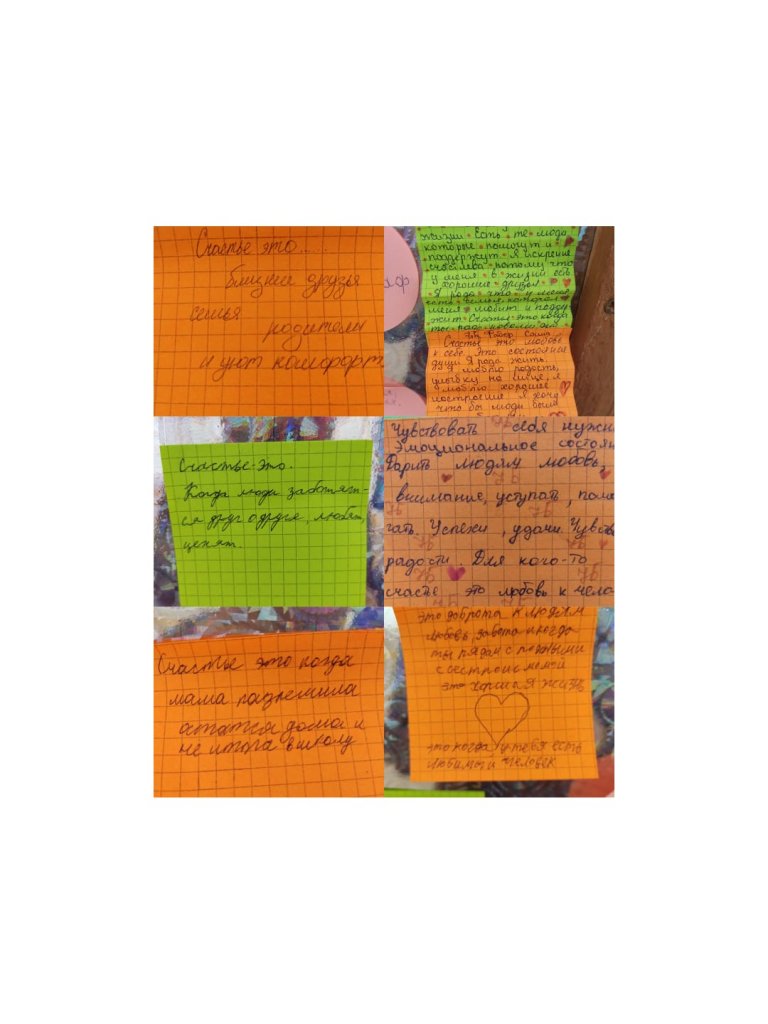 Счастье это.....
близкие друзья
семья
родители
и уют комфорт
жизни есть те люди
которые помогут и
поддержут. Я искренне
счастлива потому что
у меня в жизни есть
хорошие друзья.
Я рада что у меня
есть семья которая
меня любит и поддер
жит. Счастье это когда
ты рад
7Б
Счастье это любовь
к себе. Это состояние
души. Я рада жить.
Я люблю радость,
улыбку на лице, я
люблю хорошее
настроение. Я хочу
что бы люди были
Счастье-это.
Когда люди заботят-
ся друг о друге, любят,
ценят.
Чувствовать себя нужн
Эмоциональное состоян
Дарить людям любовь,
внимание, уступать, помо
гать. Успехи, удачи. Чувство
радости. Для кого-то
счастье это любовь к чело
Счастье это когда
мама разрешила
остатся дома и
не итога в школу
это доброта к людям
любовь, забота и когда
ты рядом с родными
с сестрой с мамой
это хорошая жизнь
это когда у тебя есть
любимый человек